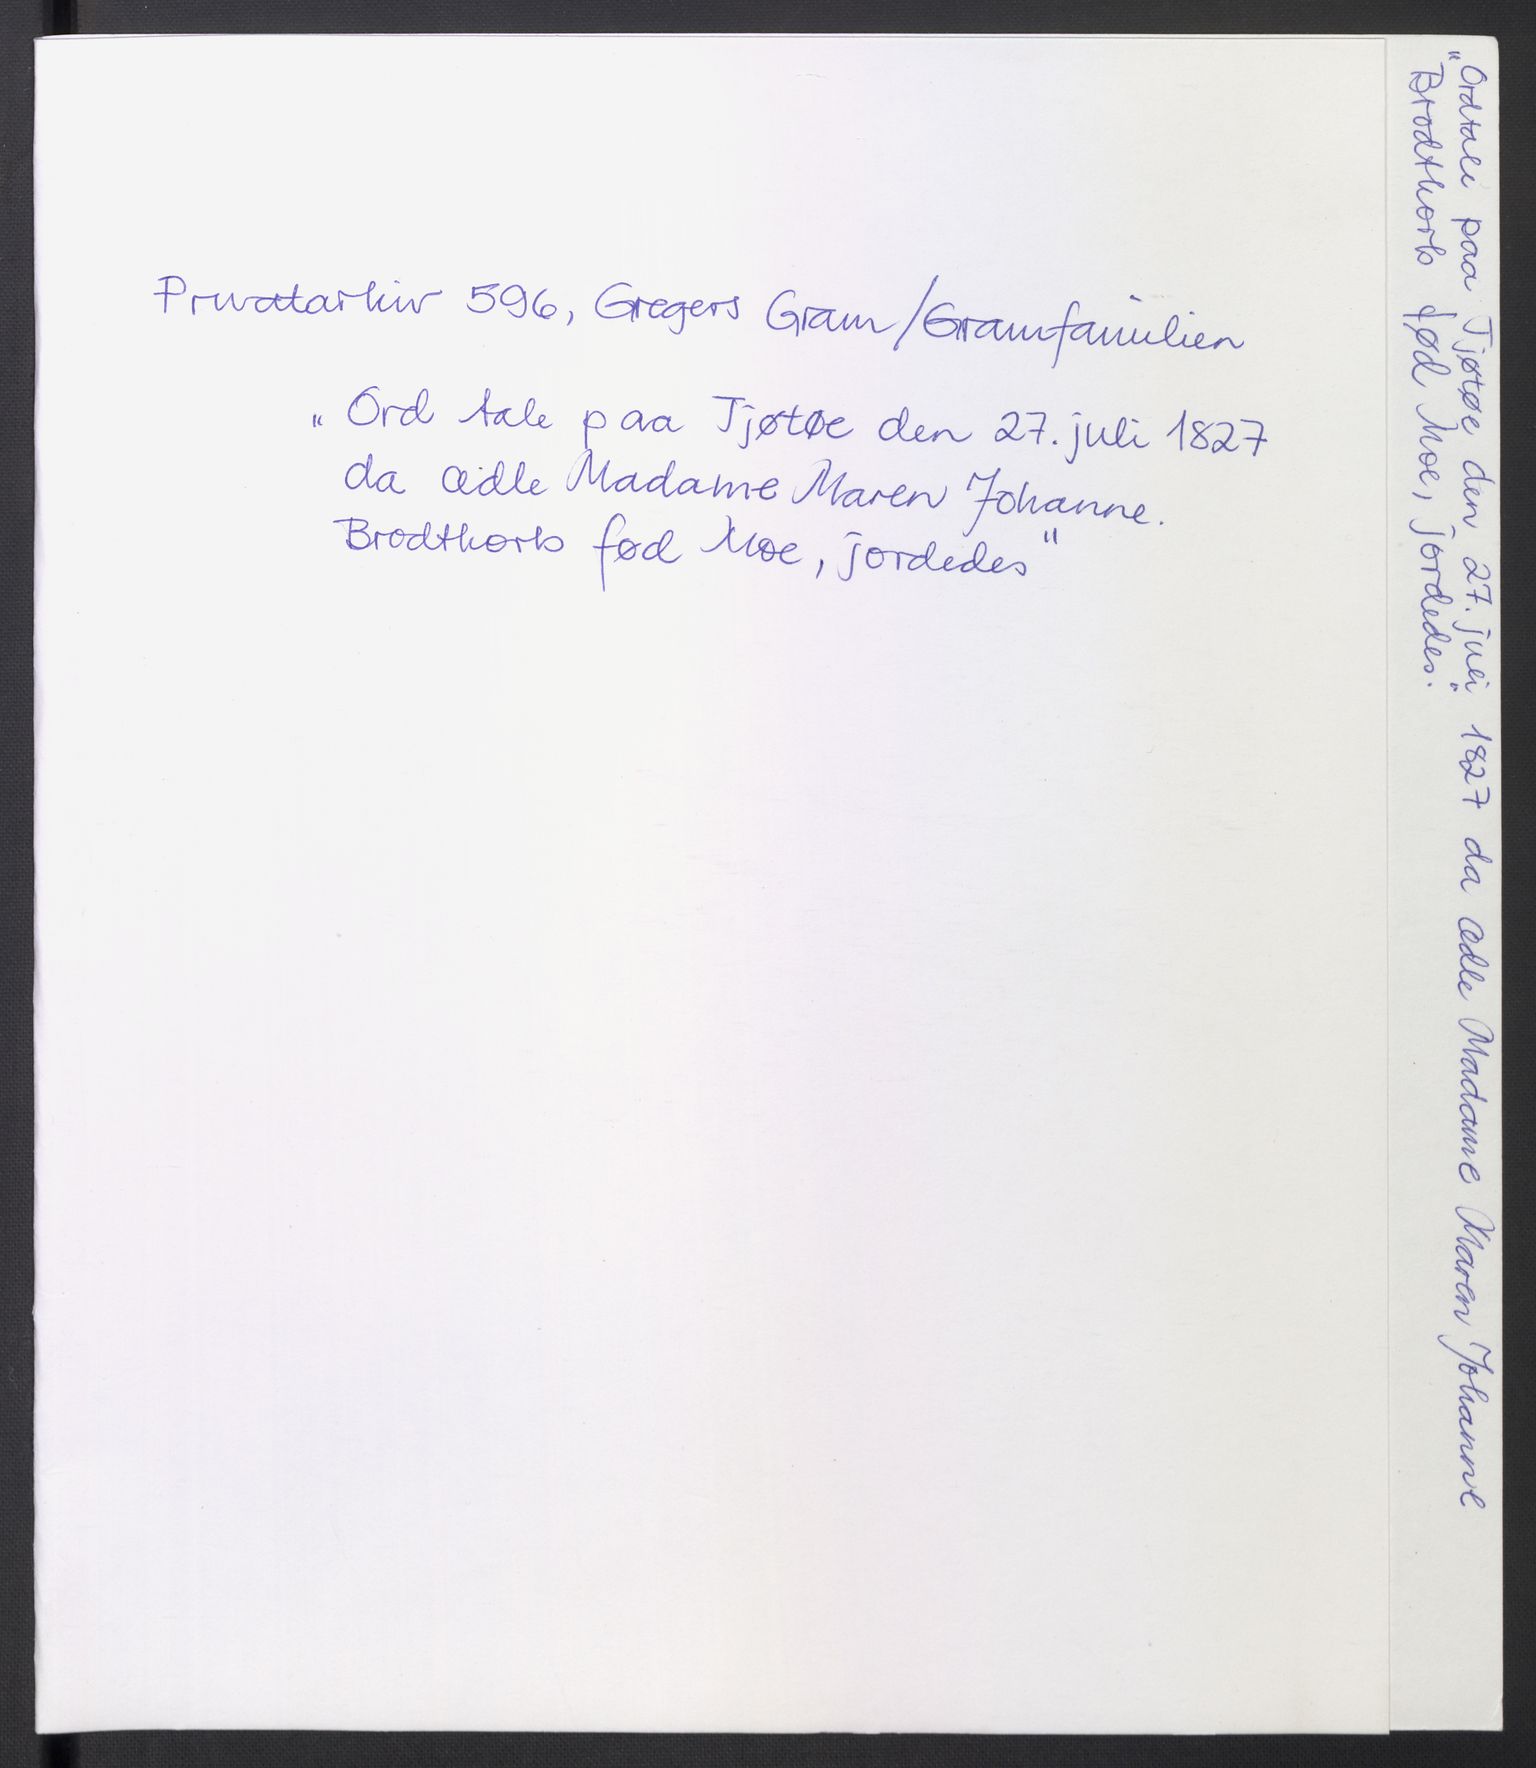 Privatarkiv 596, Gregers Gram/Gramfamilien
„Ord tale paa Tjøtøe den 27. juli 1827
da ædle Madame Maren Johanne.
Brodtkorb fød Moe, jordedes"
„Ordtale paa Tjøtøe den 27. juli 1827 da ædle Madame Maren Johanne
Brodtkorb fød Moe, jordedes."